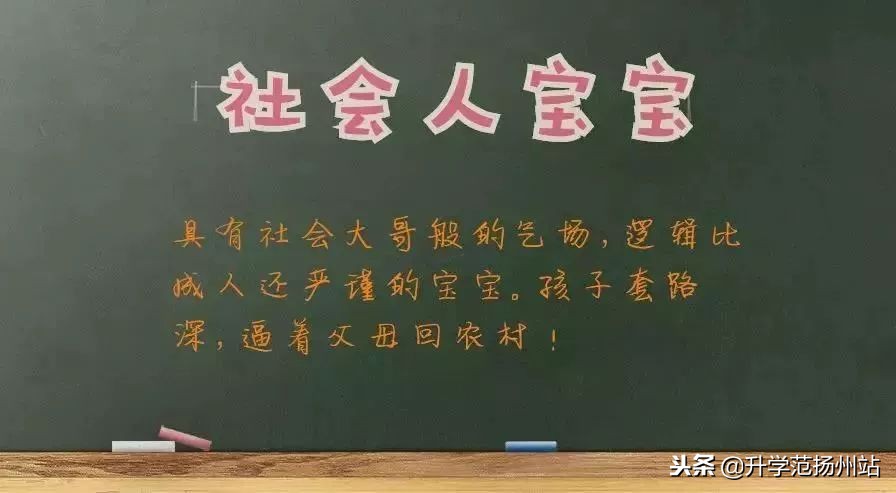 社会人宝宝
具有社会大哥般的气场,逻辑比
成人还严谨的宝宝。孩子套路
深,逼着父母回农村!
头条@升学范扬州站